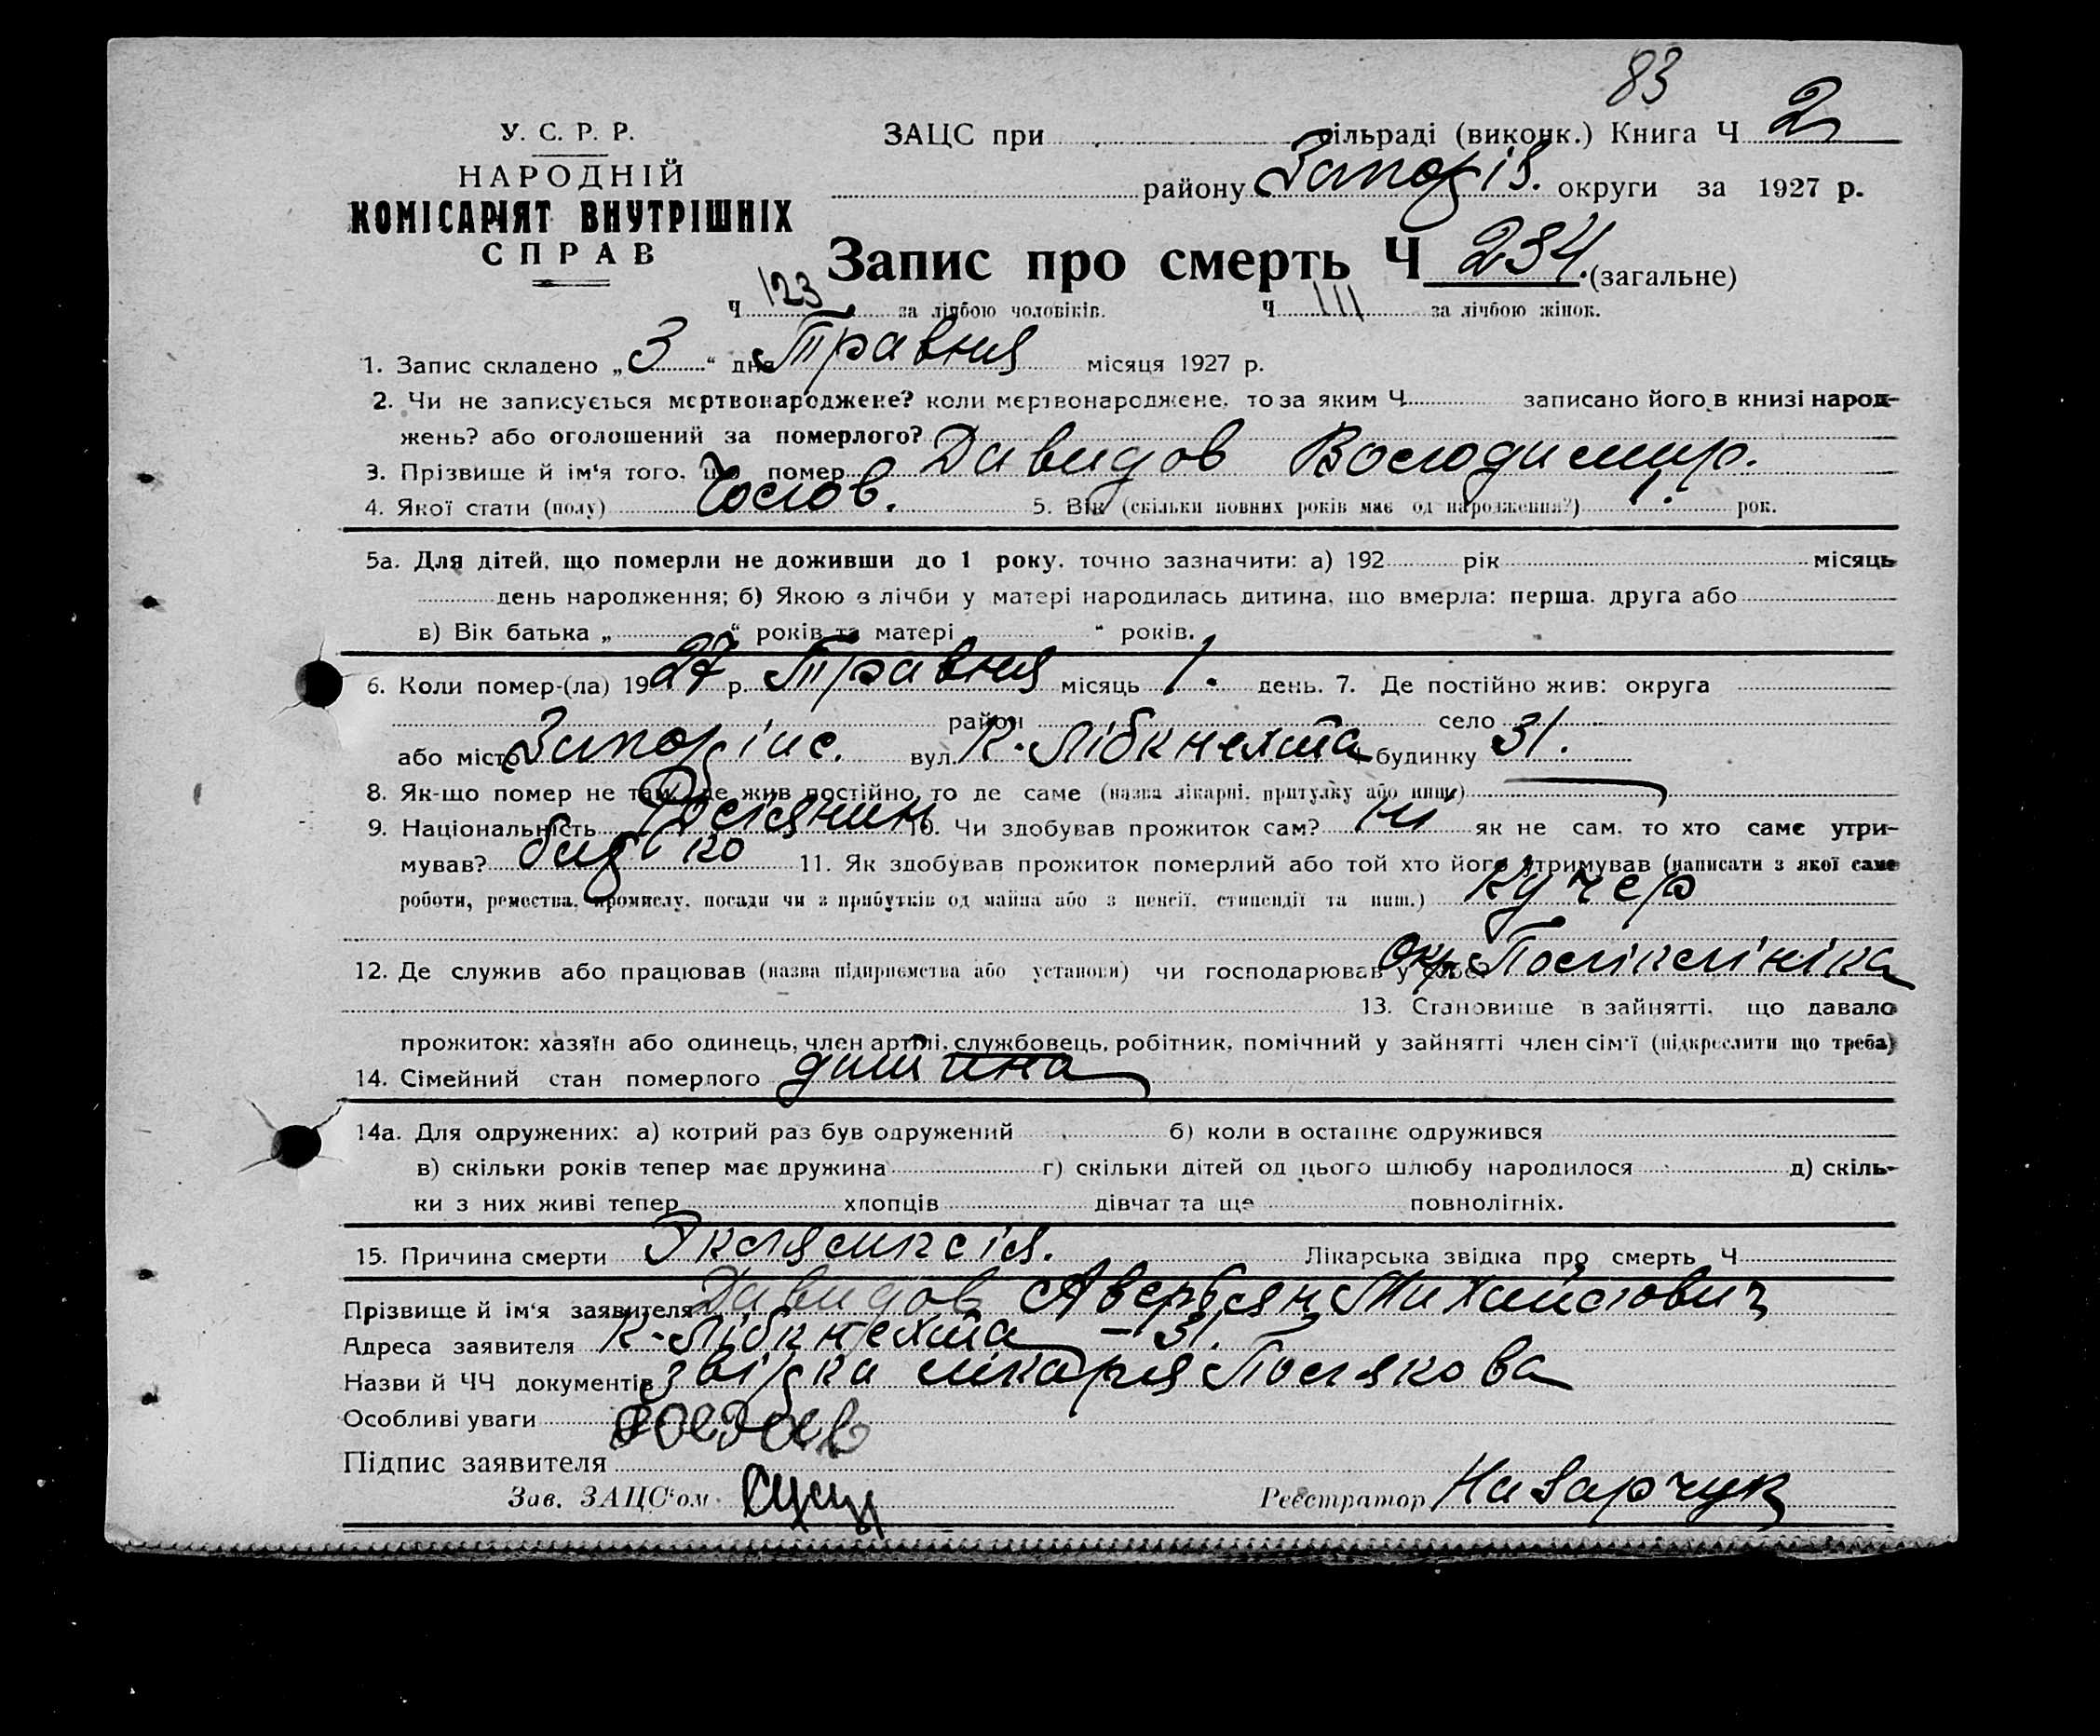 83
У. С. Р. Р.
НАРОДНІЙ
КОМІСАРІЯТ ВНУТРІШНІХ
СПРАВ
ЗАЦС при сільраді (виконк.) Книга Ч 2
району Запоріз. округи за 1927 р.
Запис про смерть Ч 234. (загальне)
Ч 123 за лічбою чоловіків. Ч 111 за лічбою жінок.
1. Запис складено „ 3 “ дня Травня місяця 1927 р.
2. Чи не записується мертвонароджене? коли мертвонароджене, то за яким Ч записано його в книзі народ-
жень? або оголошений за померлого?
3. Прізвище й ім‘я того, що помер Давидов Володимир.
4. Якої стати (полу) Чолов. 5. Вік (скільки повних років має од народження?) 1. рок.
5а. Для дітей, що померли не доживши до 1 року, точно зазначити: а) 192 рік місяць
день народження; б) Якою з лічби у матері народилась дитина, що вмерла: перша, друга або
в) Вік батька „ “ років та матері “ років.
6. Коли помер-(ла) 1927 р. Травня місяць 1. день. 7. Де постійно жив: округа
район село
або місто Запоріже. вул. К. Лібкнехта будинку 31.
8. Як-що помер не там, де жив постійно, то де саме (назва лікарні, притулку або инше)
9. Національність Росіянин 10. Чи здобував прожиток сам? ні як не сам, то хто саме утри-
мував? батько 11. Як здобував прожиток померлий або той хто його утримував (написати з якої саме
роботи, ремества, промислу, посади чи з прибутків од майна або з пенсії, стипендії та инш.) Кучер
12. Де служив або працював (назва підприємства або установи) чи господарював у себе? Окр. Полікляніка
13. Становище в зайнятті, що давало
прожиток: хазяїн або одинець, член артілі, службовець, робітник, помічний у зайнятті член сім‘ї (підкреслити що треба)
14. Сімейний стан померлого дитина
14а. Для одружених: а) котрий раз був одружений б) коли в останнє одружився
в) скільки років тепер має дружина г) скільки дітей од цього шлюбу народилося д) скіль-
ки з них живі тепер хлопців дівчат та ще повнолітніх.
15. Причина смерти Эклямксія. Лікарська звідка про смерть Ч
Прізвище й ім‘я заявителя Давидов Аверьян Михайлович
Адреса заявителя К. Лібкнехта – 31.
Назви й ЧЧ документів звідка лікаря Полякова
Особливі уваги
Підпис заявителя
Зав. ЗАЦС‘ом Реєстратор Назарчук